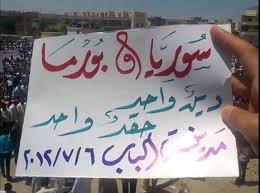 سوريا و بورما
دينٌ واحد
حقدٌ واحد
مدينة الباب ٢٠١٢/٧/٦